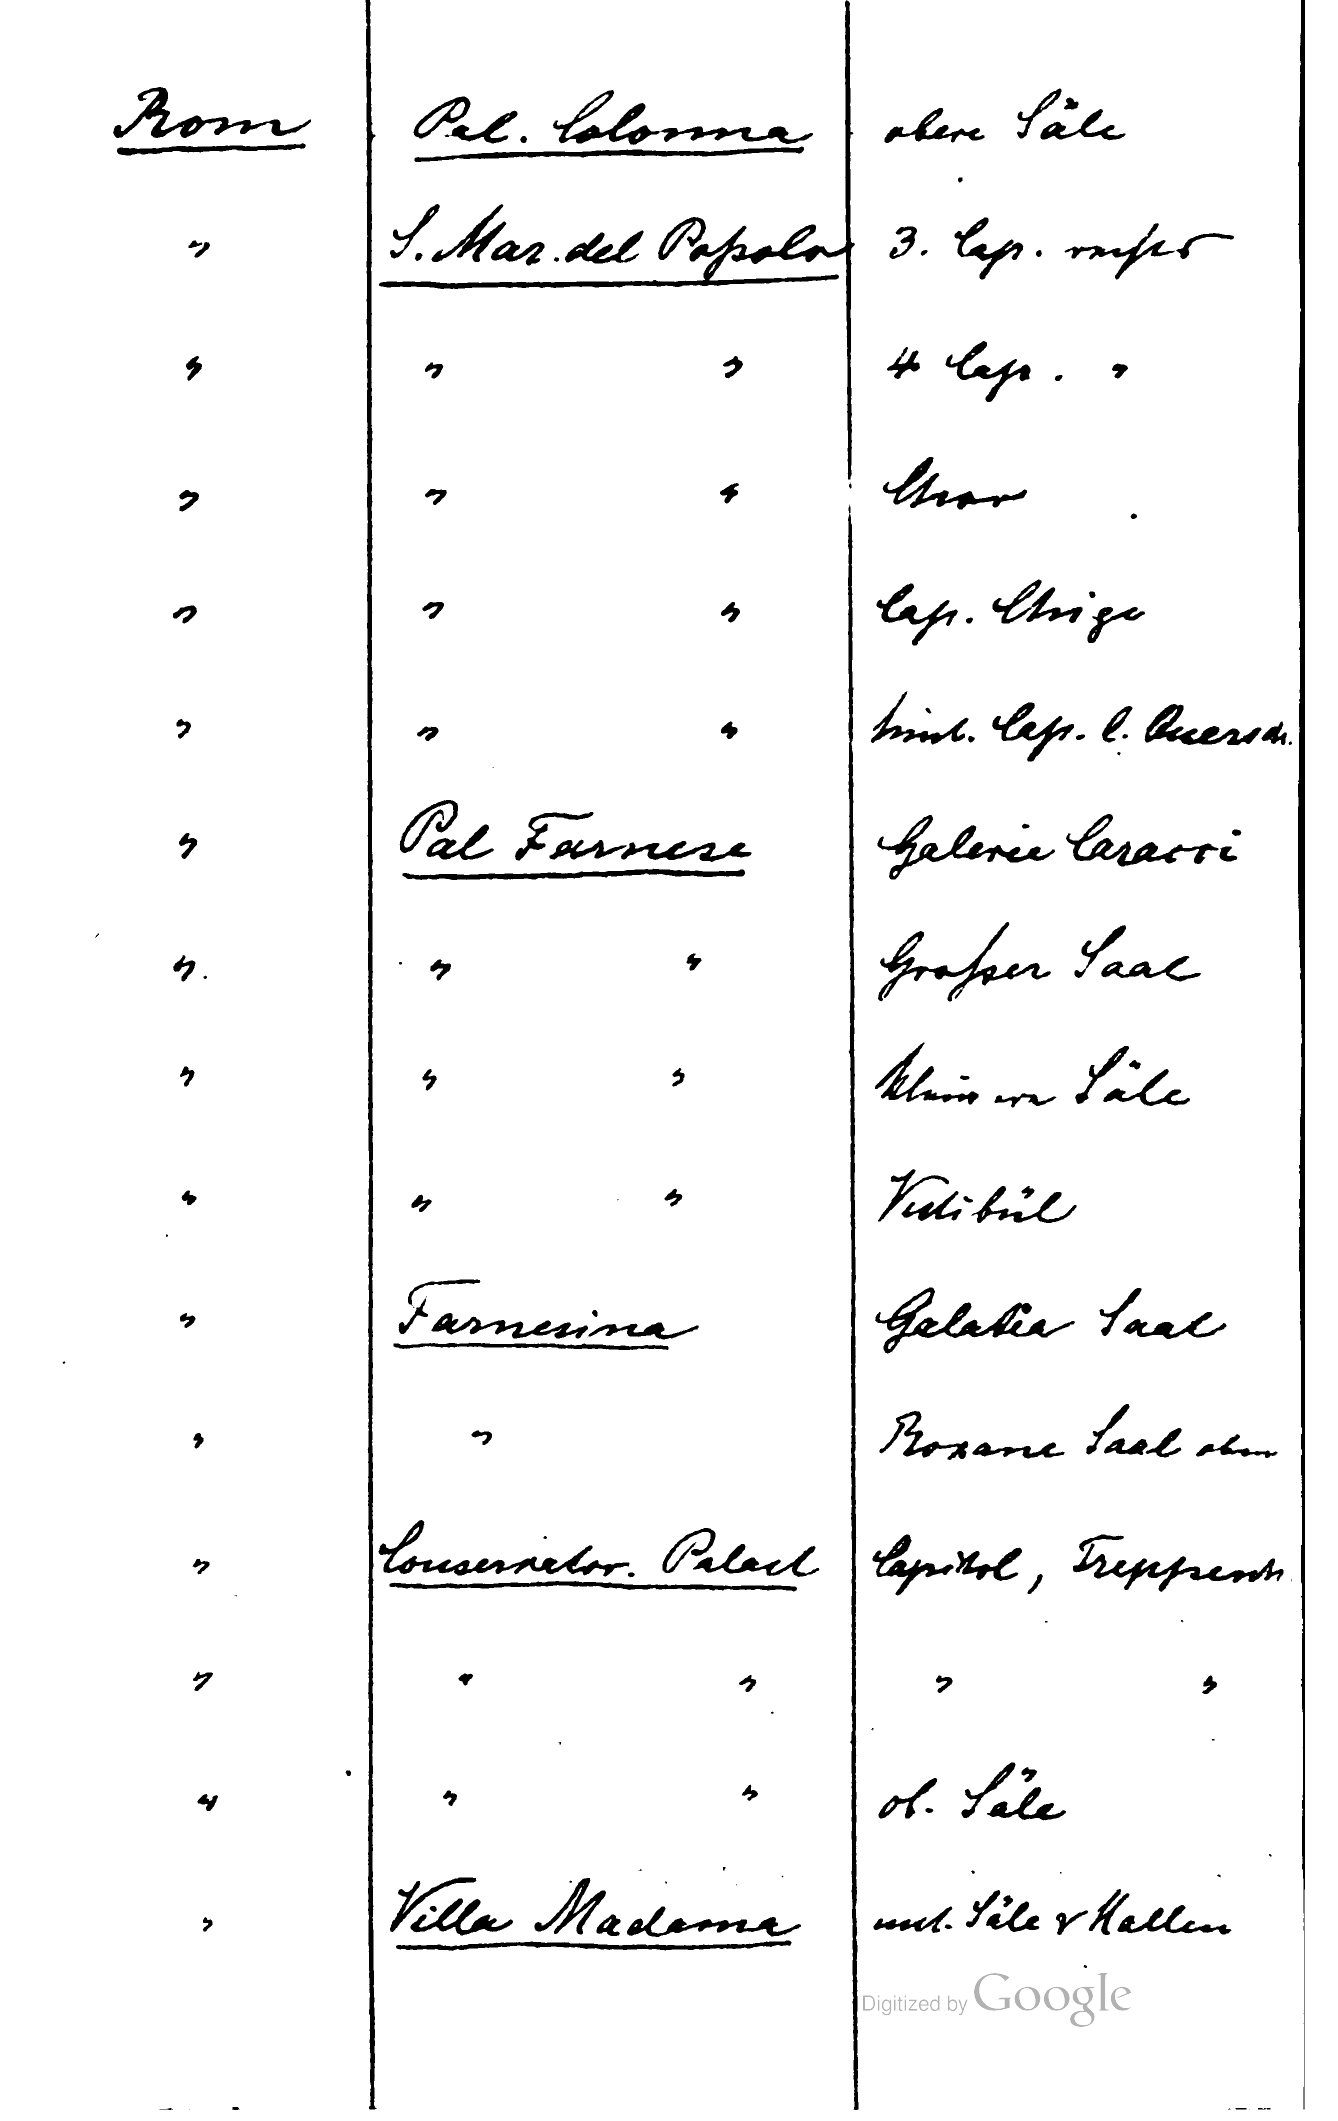 Rom Pal. Colonna obere Säle
" S. Mar. del Popolo 3. Cap. rechts
" " " 4 Cap. "
" " " Chor
" " " Cap. Chige
" " " hint. Cap. l. Quersch.
" Pal Farnese Galerie Caracci
" " " Großer Saal
" " " kleinere Säle
" " " Vestibül
" Farnesina Galatea Saal
" " Roxane Saal oben
" Conservator. Palast Capitol, Treppenh
" " " " "
" " " ob. Säle
" Villa Madama unt. Säle & Hallen
Digitized by Google